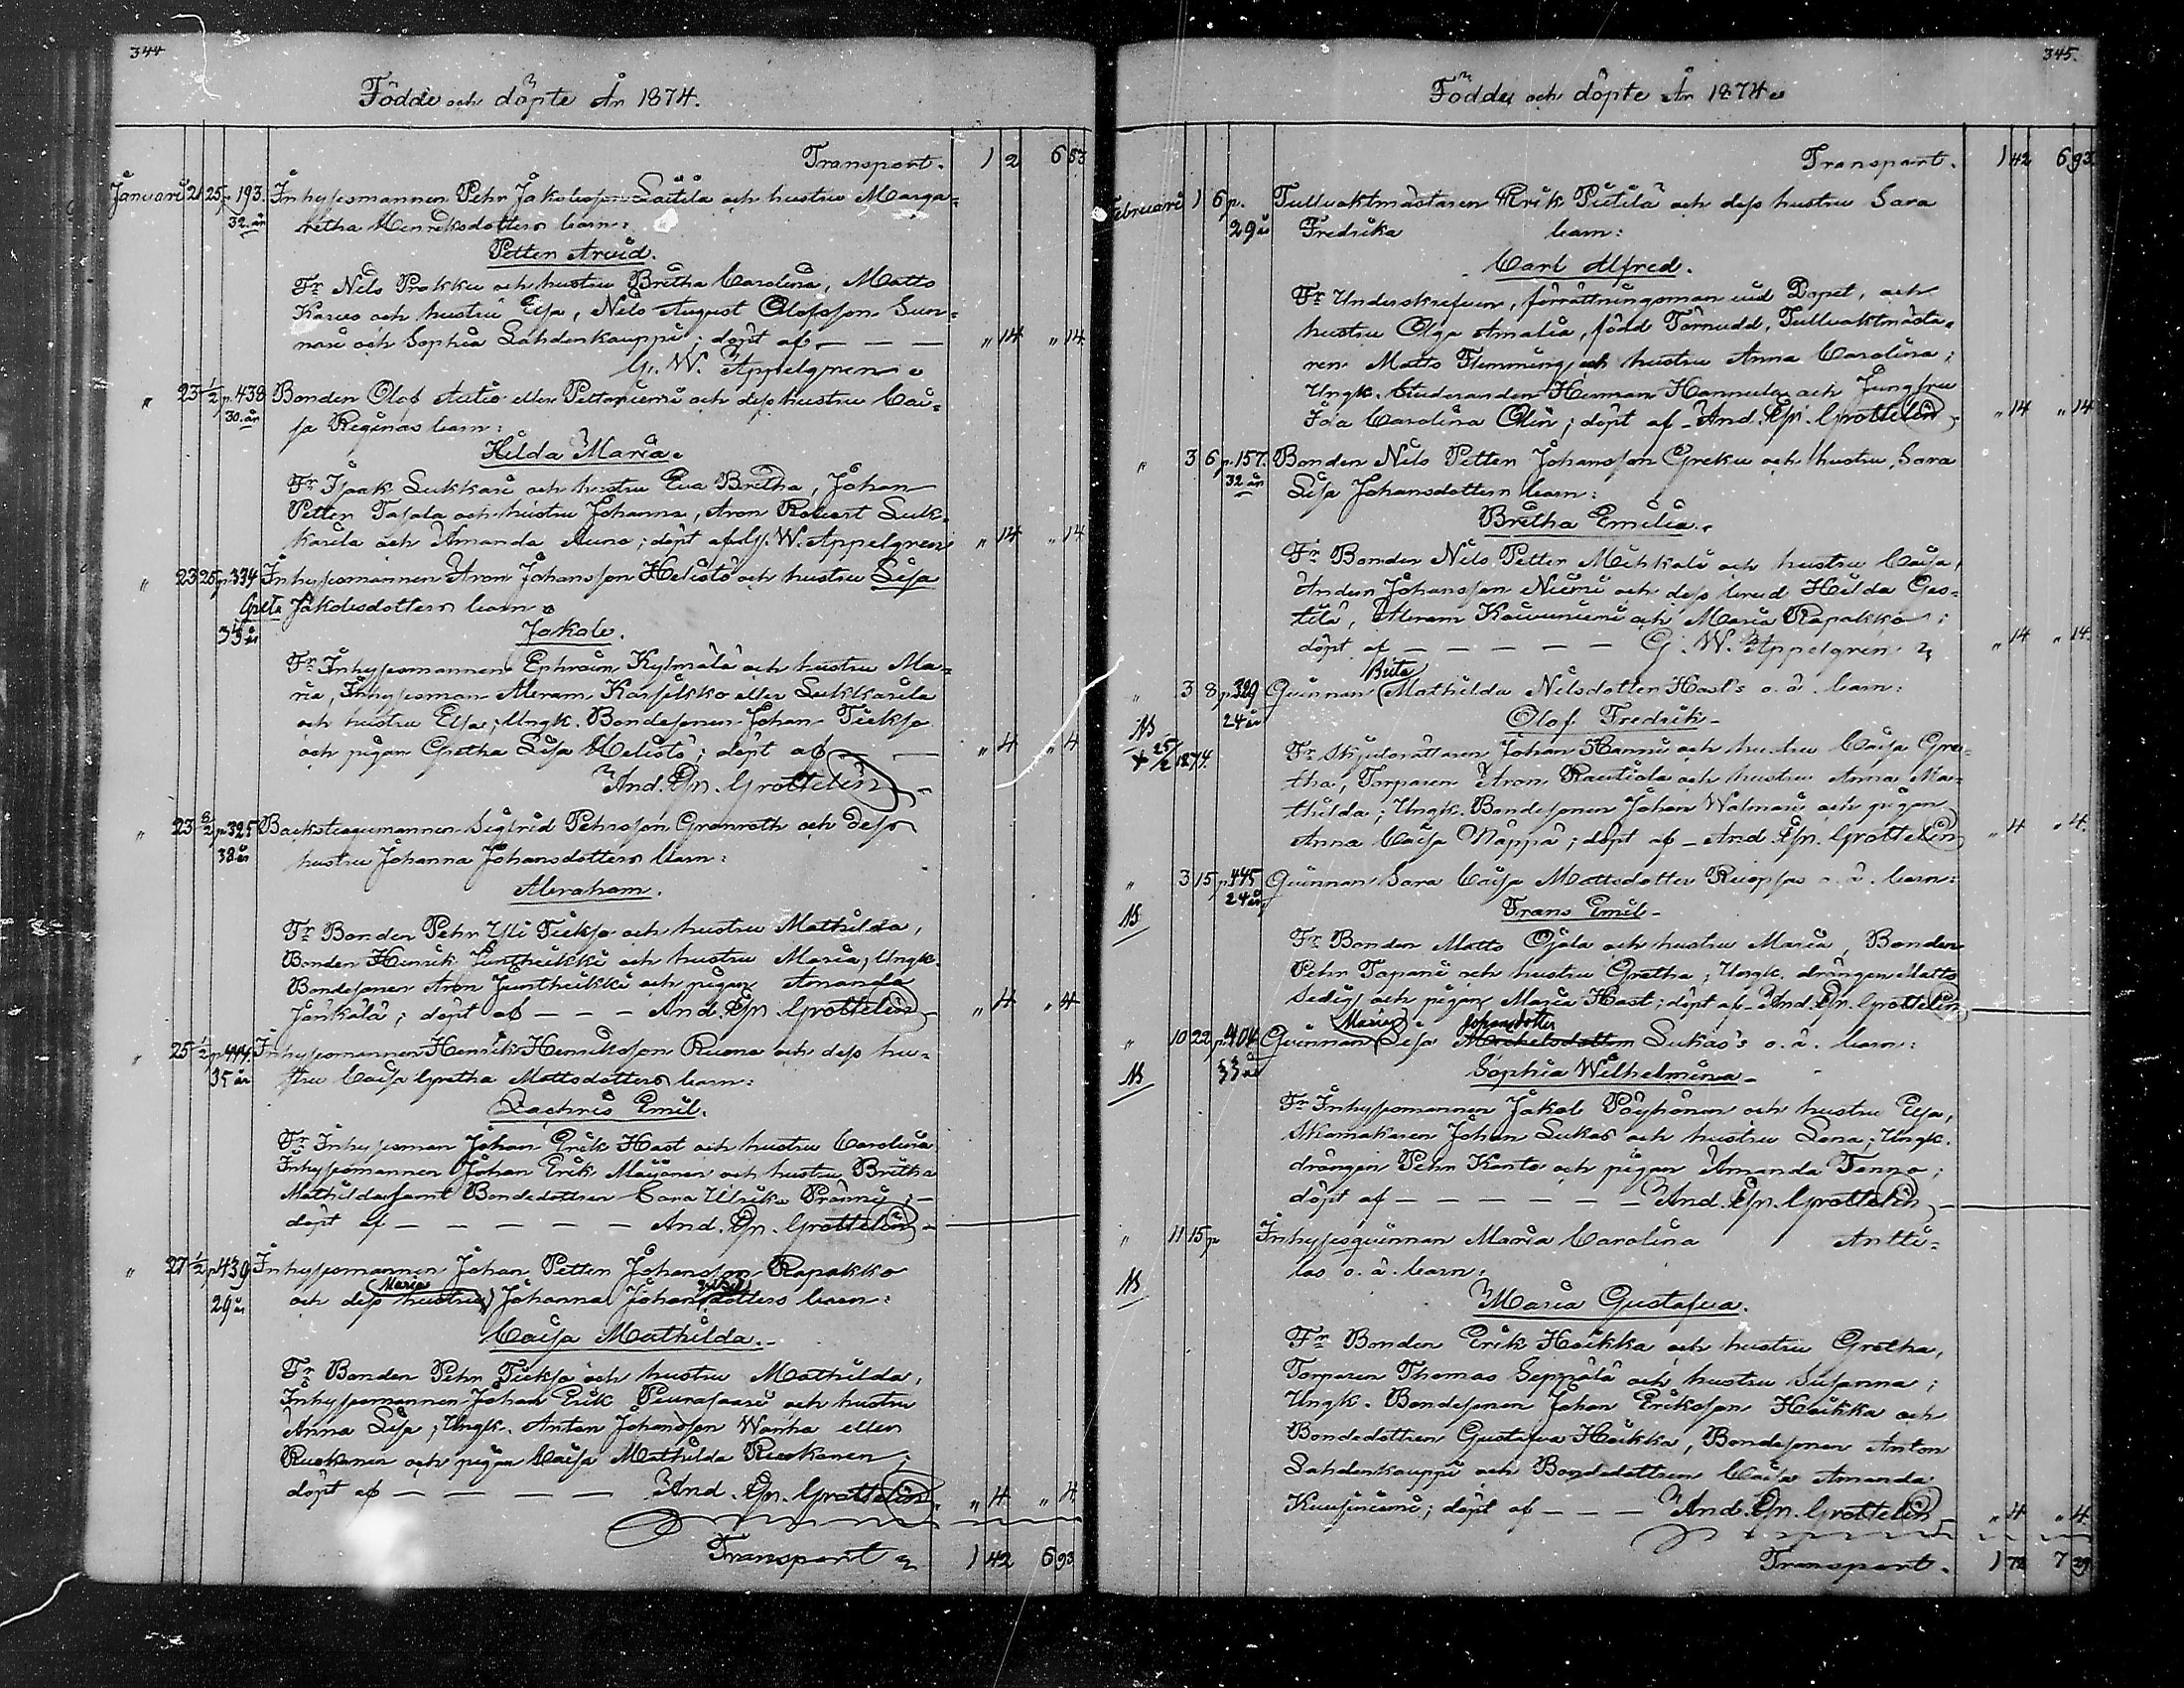 344
Födde och döpte År 1874.
Transport. 1 2 6 53
Januari 21 25 p. 193. Inhysesmannen Pehr Jakobsson Laitila och hustru Marga=
32. år retha Henriksdotters barn:
Petter Arvid.
Fr Nils Prokku och hustru Bretha Carolina, Matts
Karvo och hustru Elsa, Nils August Olofsson Sun=
nari och Sophia Lahdenkauppi; döpt af — — — " 14 " 14
G. W. Appelgren
" 23 1/2 p. 438 Bonden Olof Autio eller Pettäniemi och dess hustru Cai=
30. år sa Reginas barn:
Hilda Maria.
Fr Isaak Lukkari och hustru Eva Bretha, Johan
Petter Tasala och hustru Johanna, Aron Robert Luk=
karila och Amanda Auno; döpt af G. W. Appelgren " 14 " 14
" 23 25 p. 334 Inhysesmannen Aron Johansson Helistö och hustru Lisa
Greta Jakobsdotters barn
33 år Jakob.
Fr Inhysesmannen Ephraim Kylmälä och hustru Ma=
ria, Inhysesman Abram Karsikko eller Lukkarila
och hustru Elsa; Ungk. Bondesonen Johan Tiekso
och pigan Gretha Lisa Helistö; döpt af — — " 4 " 4
And. Gn. Grottelin
" 23 8/2 p. 325 Backstugumannen Sigfrid Pehrsson Granroth och dess
38 år hustru Johanna Johansdotters barn:
Abraham.
Fr Bonden Pehr Yli Tiekso och hustru Mathilda,
Bonden Henrik Juntheikki och hustru Maria, Ungk.
Bondesonen Aron Juntheikki och pigan Amanda
Jänkälä; döpt af — — — And. Gn. Grottelin " 4 " 4
" 25 1/2 p. 444. Inhysesmannen Henrik Henriksson Ruona och dess hu=
35 år stru Caisa Gretha Mattsdotters barn:
Zachris Emil.
Fr Inhysesman Johan Erik Hast och hustru Carolina
Inhysesmannen Johan Erik Mäyränen och hustru Bretha
Mathilda samt Bondedottren Sara Ulrika Pränni; —
döpt af — — — — — And. Gn. Grottelin
" 27 1/2 p. 439 Inhysesmannen Johan Petter Johansson Rapakko
29 år och dess hustru Maria Johanna Johansdotters barn:
Caisa Mathilda.
Fr Bonden Pehr Tiekso och hustru Mathilda,
Inhysesmannen Johan Erik Peurasaari och hustru
Anna Lisa, Ungk. Anton Johansson Wanha eller
Ruokanen och pigan Caisa Mathilda Ruokanen,
döpt af — — — — And. Gn. Grottelin " 4 " 4
Transport 1 42 6 93
345.
Födde och döpte År 1874
Transport. 1 42 6 93.
Februari 1 6 p. Tullvaktmästaren Erik Pietilä och dess hustru Sara
29 år Fredrika barn:
Carl Alfred.
Fr Underskrefven, förrättningsman vid Dopet, och
hustru Olga Amalia, född Törnudd, Tullvaktmästa=
ren Matts Flemming och hustru Anna Carolina;
Ungk. Studeranden Herman Hannula och Jungfru
Ida Carolina Olin; döpt af — And. Gn. Grottelin " 14 " 14
" 3 6 p. 157. Bonden Nils Petter Johansson Greku och hustru Sara
32 år Lisa Johansdotters barn:
Bretha Emilia.
Fr Bonden Nils Petter Mihkali och hustru Caisa,
Anders Johansson Niemi och dess brud Hilda Ges=
tilä, Abram Kaivuniemi och Maria Rapakko;
döpt af — — — — — G. W. Appelgren " 14 " 14.
" 3 8 p. 329 Qvinnan Brita Mathilda Nilsdotter Hast's o. ä. barn:
24 år Olof Fredrik
NB
+ 25/2 1874. Fr Skjutsrättaren Johan Hannu och hustru Caisa Gre=
tha, Torparen Aron Rautiola och hustru Anna Ma=
thilda; Ungk. Bondesonen Johan Walmari och pigan
Anna Caisa Näppä; döpt af — And. Gn. Grottelin " 4 " 4.
" 3 15 p. 445 Qvinnan Sara Caisa Mattsdotter Ruopsas o. ä. barn:
24 år Frans Emil
NB
Fr Bonden Matts Ojala och hustru Maria, Bonden
Pehr Tapani och hustru Gretha; Ungk. drängen Matts
Sedig och pigan Maria Hast; döpt af — And. Gn. Grottelin
" 10 22 p. 404 Qvinnan Maria Lisa Michelsdotter Johansdotter Lukas's o. ä. barn:
33 år Sophia Wilhelmina
NB
Fr Inhysesmannen Jakob Pöyhönen och hustru Elsa,
Skomakaren Johan Lukas och hustru Lena; Ungk.
drängen Pehr Kento och pigan Amanda Tenno;
döpt af — — — — — And. Gn. Grottelin
" 11 15 p Inhysesqvinnan Maria Carolina Antti=
las o. ä. barn:
NB Maria Gustafva.
Fr Bonden Erik Heikka och hustru Gretha,
Torparen Thomas Seppälä och hustru Susanna;
Ungk. Bondesonen Johan Eriksson Heikka och
Bondedottren Gustafva Heikka, Bondesonen Anton
Lahdenkauppi och Bondedottren Caisa Amanda
Kuusiniemi; döpt af — — — And. Gn. Grottelin " 4 " 4
Transport. 1 72 7 29